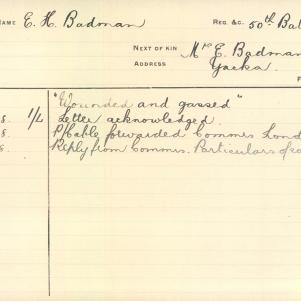 NAME E. H. Badman REG. &C. 50th Bat
NEXT OF KIN Mrs E. Badman
ADDRESS Yacka.
"Wounded and gassed"
8. 1/6 Letter acknowledged.
8. P/Cable forwarded Commrs Lond
8. Reply from Commrs. Particulars of